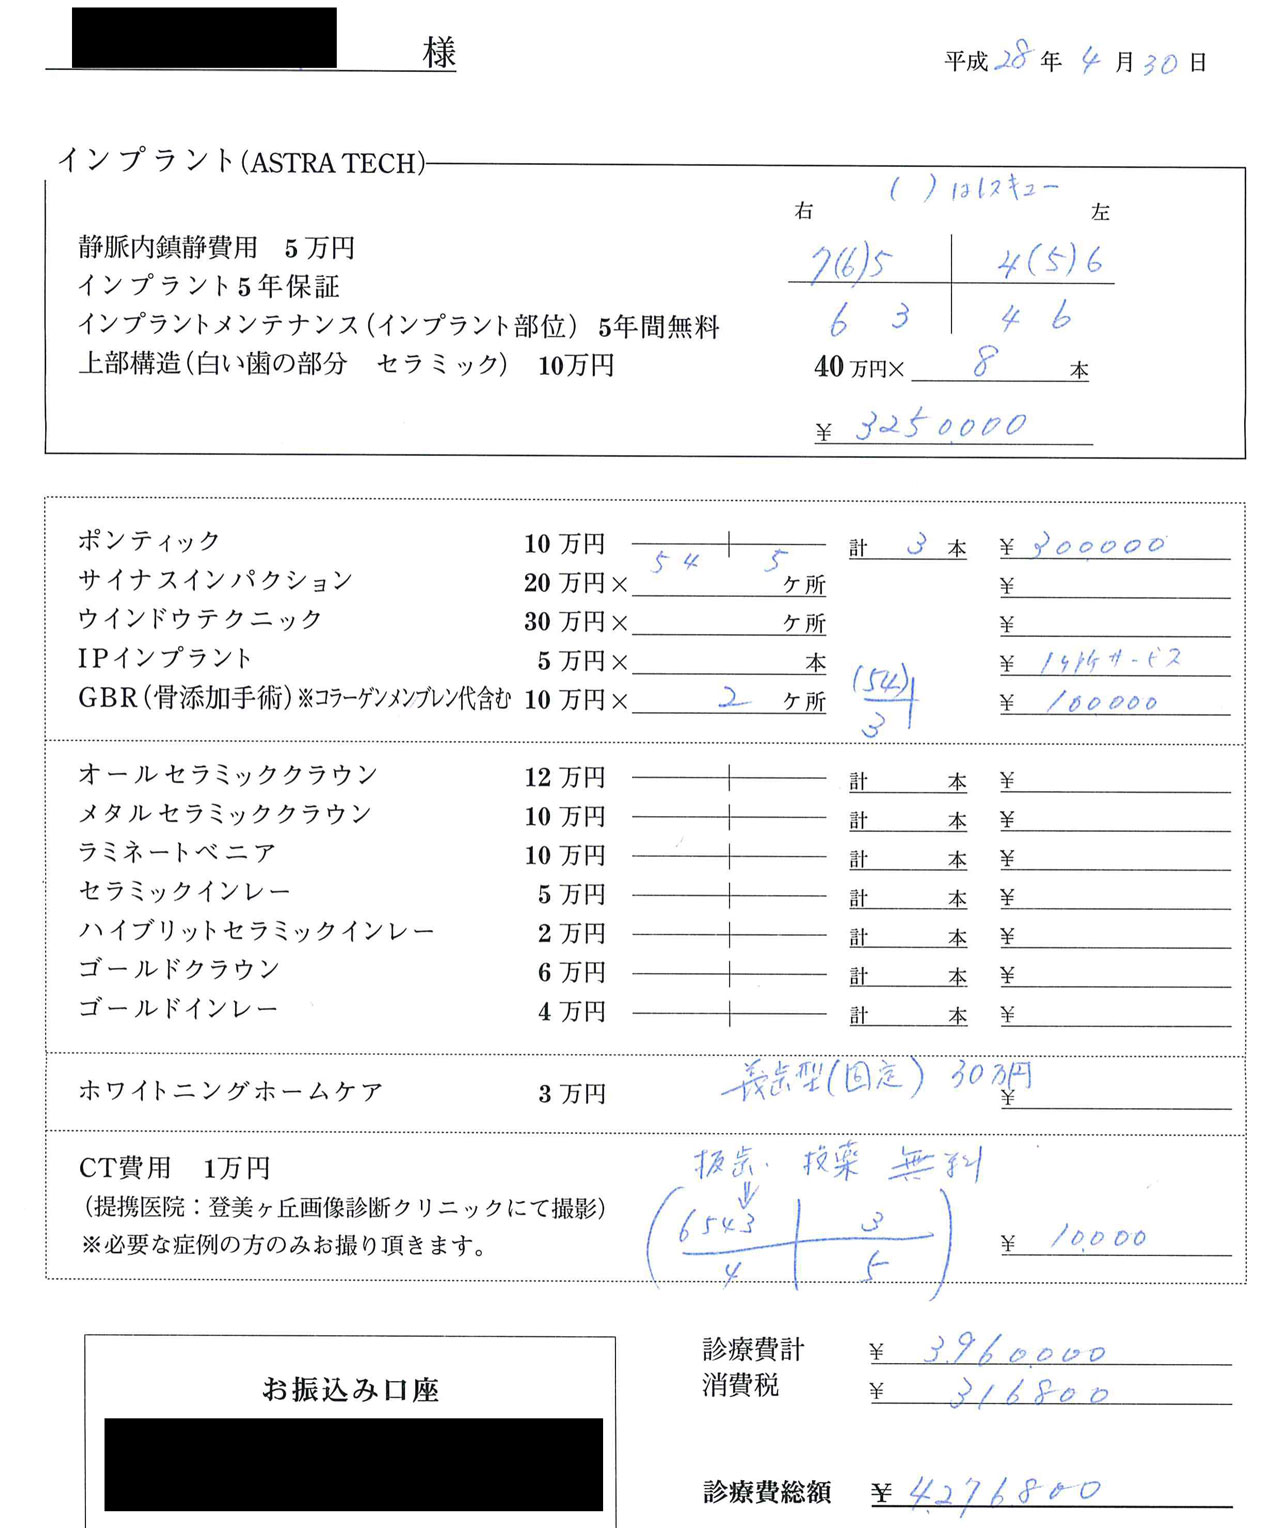 様
平成 28 年 4 月 30 日
インプラント(ASTRA TECH)
( )はレスキュー
右 左
静脈内鎮静費用 5万円
7(6)5 4(5)6
インプラント5年保証
6 3 4 6
インプラントメンテナンス(インプラント部位) 5年間無料
上部構造(白い歯の部分 セラミック) 10万円
40万円× 8 本
¥ 3250000
ポンティック 10万円 計 3 本 ¥ 300000
54 5
サイナスインパクション 20万円× ケ所 ¥
ウインドウテクニック 30万円× ケ所 ¥
IPインプラント 5万円× 本 ¥ 1ヶ所サービス
GBR(骨添加手術)※コラーゲンメンブレン代含む 10万円× 2 ケ所 (54) 3 ¥ 100000
オールセラミッククラウン 12万円 計 本 ¥
メタルセラミッククラウン 10万円 計 本 ¥
ラミネートベニア 10万円 計 本 ¥
セラミックインレー 5万円 計 本 ¥
ハイブリットセラミックインレー 2万円 計 本 ¥
ゴールドクラウン 6万円 計 本 ¥
ゴールドインレー 4万円 計 本 ¥
義歯型(固定) 30万円
ホワイトニングホームケア 3万円 ¥
CT費用 1万円
抜歯・投薬 無料
(提携医院：登美ヶ丘画像診断クリニックにて撮影)
6543 3
※必要な症例の方のみお撮り頂きます。
4 5
¥ 10000
診療費計 ¥ 3960000
消費税 ¥ 316800
お振込み口座
診療費総額 ¥ 4276800